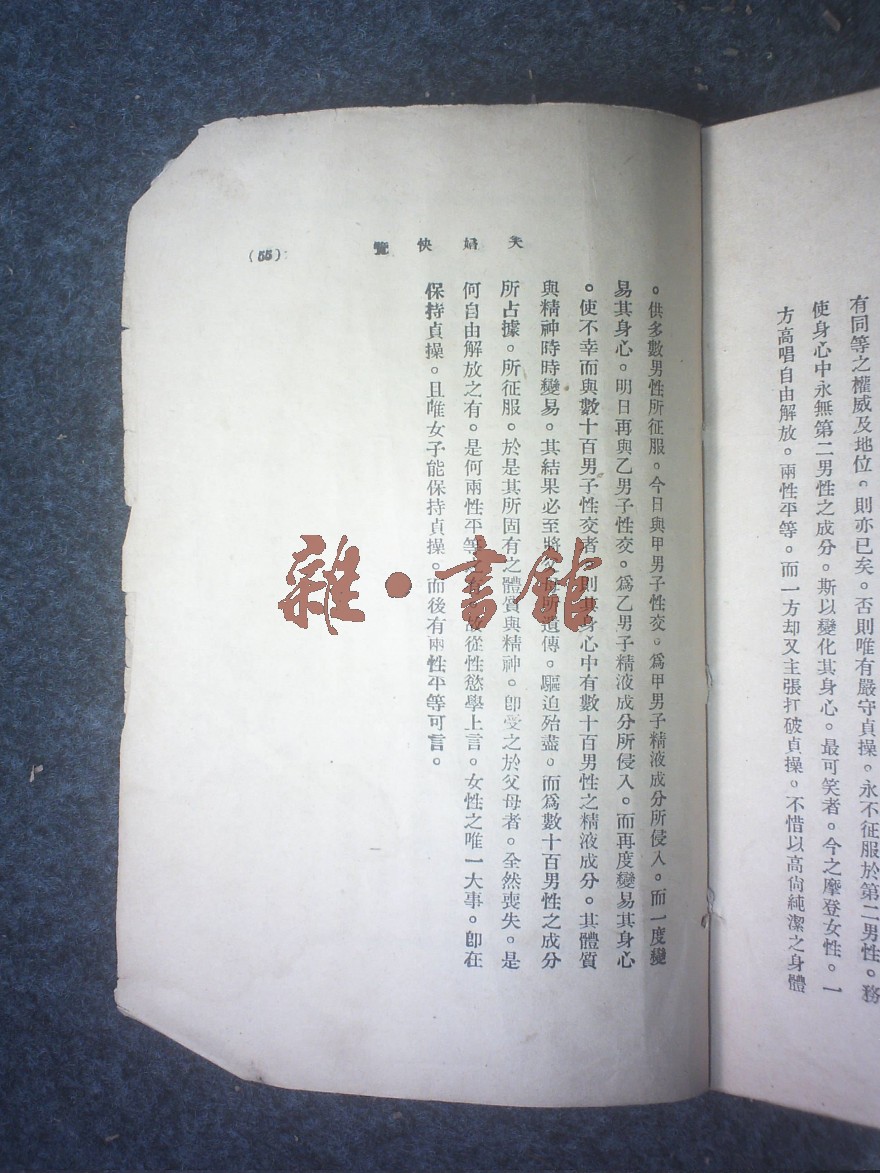 有同等之權威及地位。則亦已矣。否則唯有嚴守貞操。永不征服於第二男性。務
使身心中永無第二男性之成分。斯以變化其身心。最可笑者。今之摩登女性。一
方高唱自由解放。兩性平等。而一方却又主張打破貞操。不惜以高尙純潔之身體
夫婦快覽
(55)
。供多數男性所征服。今日與甲男子性交。爲甲男子精液成分所侵入。而一度變
易其身心。明日再與乙男子性交。爲乙男子精液成分所侵入。而再度變易其身心
。使不幸而與數十百男子性交者。則其身心中有數十百男性之精液成分。其體質
與精神時時變易。其結果必至將父母所遺傳。驅迫殆盡。而爲數十百男性之成分
所占據。所征服。於是其所固有之體質與精神。卽受之於父母者。全然喪失。是
何自由解放之有。是何兩性平等之有。故從性慾學上言。女性之唯一大事。卽在
保持貞操。且唯女子能保持貞操。而後有兩性平等可言。
雜·書館